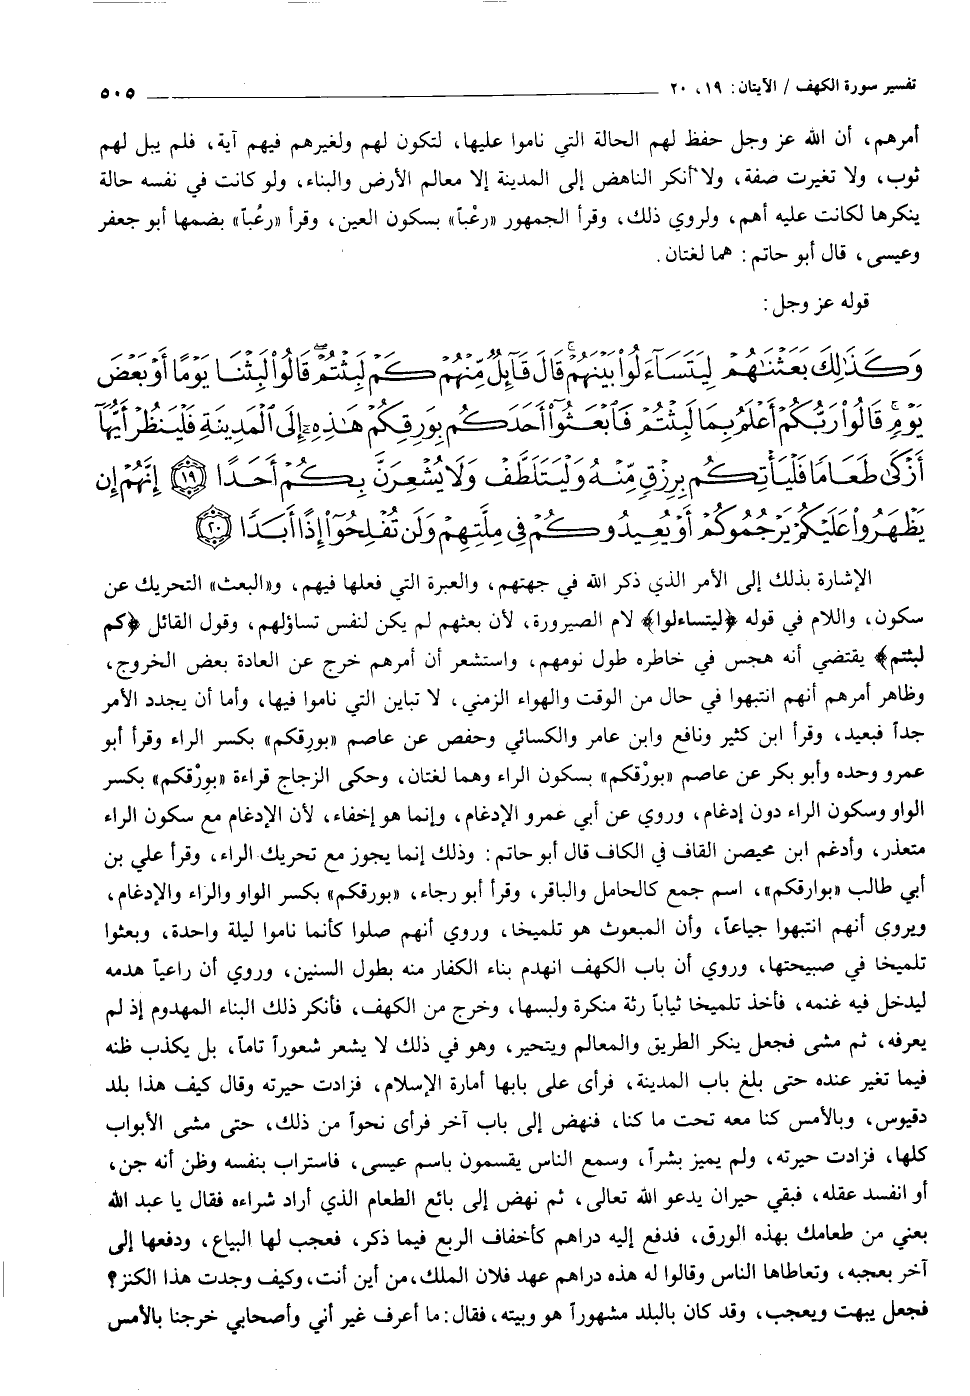 تفسير سورة الكهف / الآيتان: ١٩، ٢٠ ٥٠٥
أمرهم، أن الله عز وجل حفظ لهم الحالة التي ناموا عليها، لتكون لهم ولغيرهم فيهم آية، فلم يبل لهم
ثوب، ولا تغيرت صفة، ولا أنكر الناهض إلى المدينة إلا معالم الأرض والبناء، ولو كانت في نفسه حالة
ينكرها لكانت عليه أهم، ولروي ذلك، وقرأ الجمهور «رعْباً» بسكون العين، وقرأ «رعُباً» بضمها أبو جعفر
وعيسى، قال أبو حاتم: هما لغتان.
قوله عز وجل:
وَكَذَٰلِكَ بَعَثْنَاهُمْ لِيَتَسَاءَلُوا بَيْنَهُمْ ۚ قَالَ قَائِلٌ مِّنْهُمْ كَمْ لَبِثْتُمْ ۖ قَالُوا لَبِثْنَا يَوْمًا أَوْ بَعْضَ
يَوْمٍ ۚ قَالُوا رَبُّكُمْ أَعْلَمُ بِمَا لَبِثْتُمْ فَابْعَثُوا أَحَدَكُم بِوَرِقِكُمْ هَٰذِهِ إِلَى الْمَدِينَةِ فَلْيَنظُرْ أَيُّهَا
أَزْكَىٰ طَعَامًا فَلْيَأْتِكُم بِرِزْقٍ مِّنْهُ وَلْيَتَلَطَّفْ وَلَا يُشْعِرَنَّ بِكُمْ أَحَدًا ﴿١٩﴾ إِنَّهُمْ إِن
يَظْهَرُوا عَلَيْكُمْ يَرْجُمُوكُمْ أَوْ يُعِيدُوكُمْ فِي مِلَّتِهِمْ وَلَن تُفْلِحُوا إِذًا أَبَدًا ﴿٢٠﴾
الإشارة بذلك إلى الأمر الذي ذكر الله في جهتهم، والعبرة التي فعلها فيهم، و«البعث» التحريك عن
سكون، واللام في قوله ﴿ليتساءلوا﴾ لام الصيرورة، لأن بعثهم لم يكن لنفس تساؤلهم، وقول القائل ﴿كم
لبثتم﴾ يقتضي أنه هجس في خاطره طول نومهم، واستشعر أن أمرهم خرج عن العادة بعض الخروج،
وظاهر أمرهم أنهم انتبهوا في حال من الوقت والهواء الزمني، لا تباين التي ناموا فيها، وأما أن يجدد الأمر
جداً فبعيد، وقرأ ابن كثير ونافع وابن عامر والكسائي وحفص عن عاصم «بورِقكم» بكسر الراء وقرأ أبو
عمرو وحده وأبو بكر عن عاصم «بورْقكم» بسكون الراء وهما لغتان، وحكى الزجاج قراءة «بوِرْقكم» بكسر
الواو وسكون الراء دون إدغام، وروي عن أبي عمرو الإدغام، وإنما هو إخفاء، لأن الإدغام مع سكون الراء
متعذر، وأدغم ابن محيصن القاف في الكاف قال أبو حاتم: وذلك إنما يجوز مع تحريك الراء، وقرأ علي بن
أبي طالب «بوارقكم»، اسم جمع كالحامل والباقر، وقرأ أبو رجاء، «بورقكم» بكسر الواو والراء والإدغام،
ويروى أنهم انتبهوا جياعاً، وأن المبعوث هو تلميخا، وروي أنهم صلوا كأنما ناموا ليلة واحدة، وبعثوا
تلميخا في صبيحتها، وروي أن باب الكهف انهدم بناء الكفار منه بطول السنين، وروي أن راعياً هدمه
ليدخل فيه غنمه، فأخذ تلميخا ثياباً رثة منكرة ولبسها، وخرج من الكهف، فأنكر ذلك البناء المهدوم إذ لم
يعرفه، ثم مشى فجعل ينكر الطريق والمعالم ويتحير، وهو في ذلك لا يشعر شعوراً تاماً، بل يكذب ظنه
فيما تغير عنده حتى بلغ باب المدينة، فرأى على بابها أمارة الإسلام، فزادت حيرته وقال كيف هذا بلد
دقيوس، وبالأمس كنا معه تحت ما كنا، فنهض إلى باب آخر فرأى نحواً من ذلك، حتى مشى الأبواب
كلها، فزادت حيرته، ولم يميز بشراً، وسمع الناس يقسمون باسم عيسى، فاستراب بنفسه وظن أنه جن،
أو انفسد عقله، فبقي حيران يدعو الله تعالى، ثم نهض إلى بائع الطعام الذي أراد شراءه فقال يا عبد الله
بعني من طعامك بهذه الورق، فدفع إليه دراهم كأخفاف الربع فيما ذكر، فعجب لها البياع، ودفعها إلى
آخر بعجبه، وتعاطاها الناس وقالوا له هذه دراهم عهد فلان الملك، من أين أنت، وكيف وجدت هذا الكنز؟
فجعل يبهت ويعجب، وقد كان بالبلد مشهوراً هو وبيته، فقال: ما أعرف غير أني وأصحابي خرجنا بالأمس